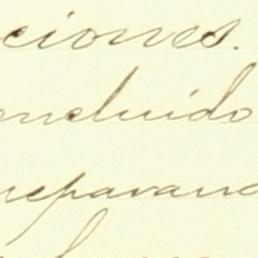 ciones.
oncluido
reparand